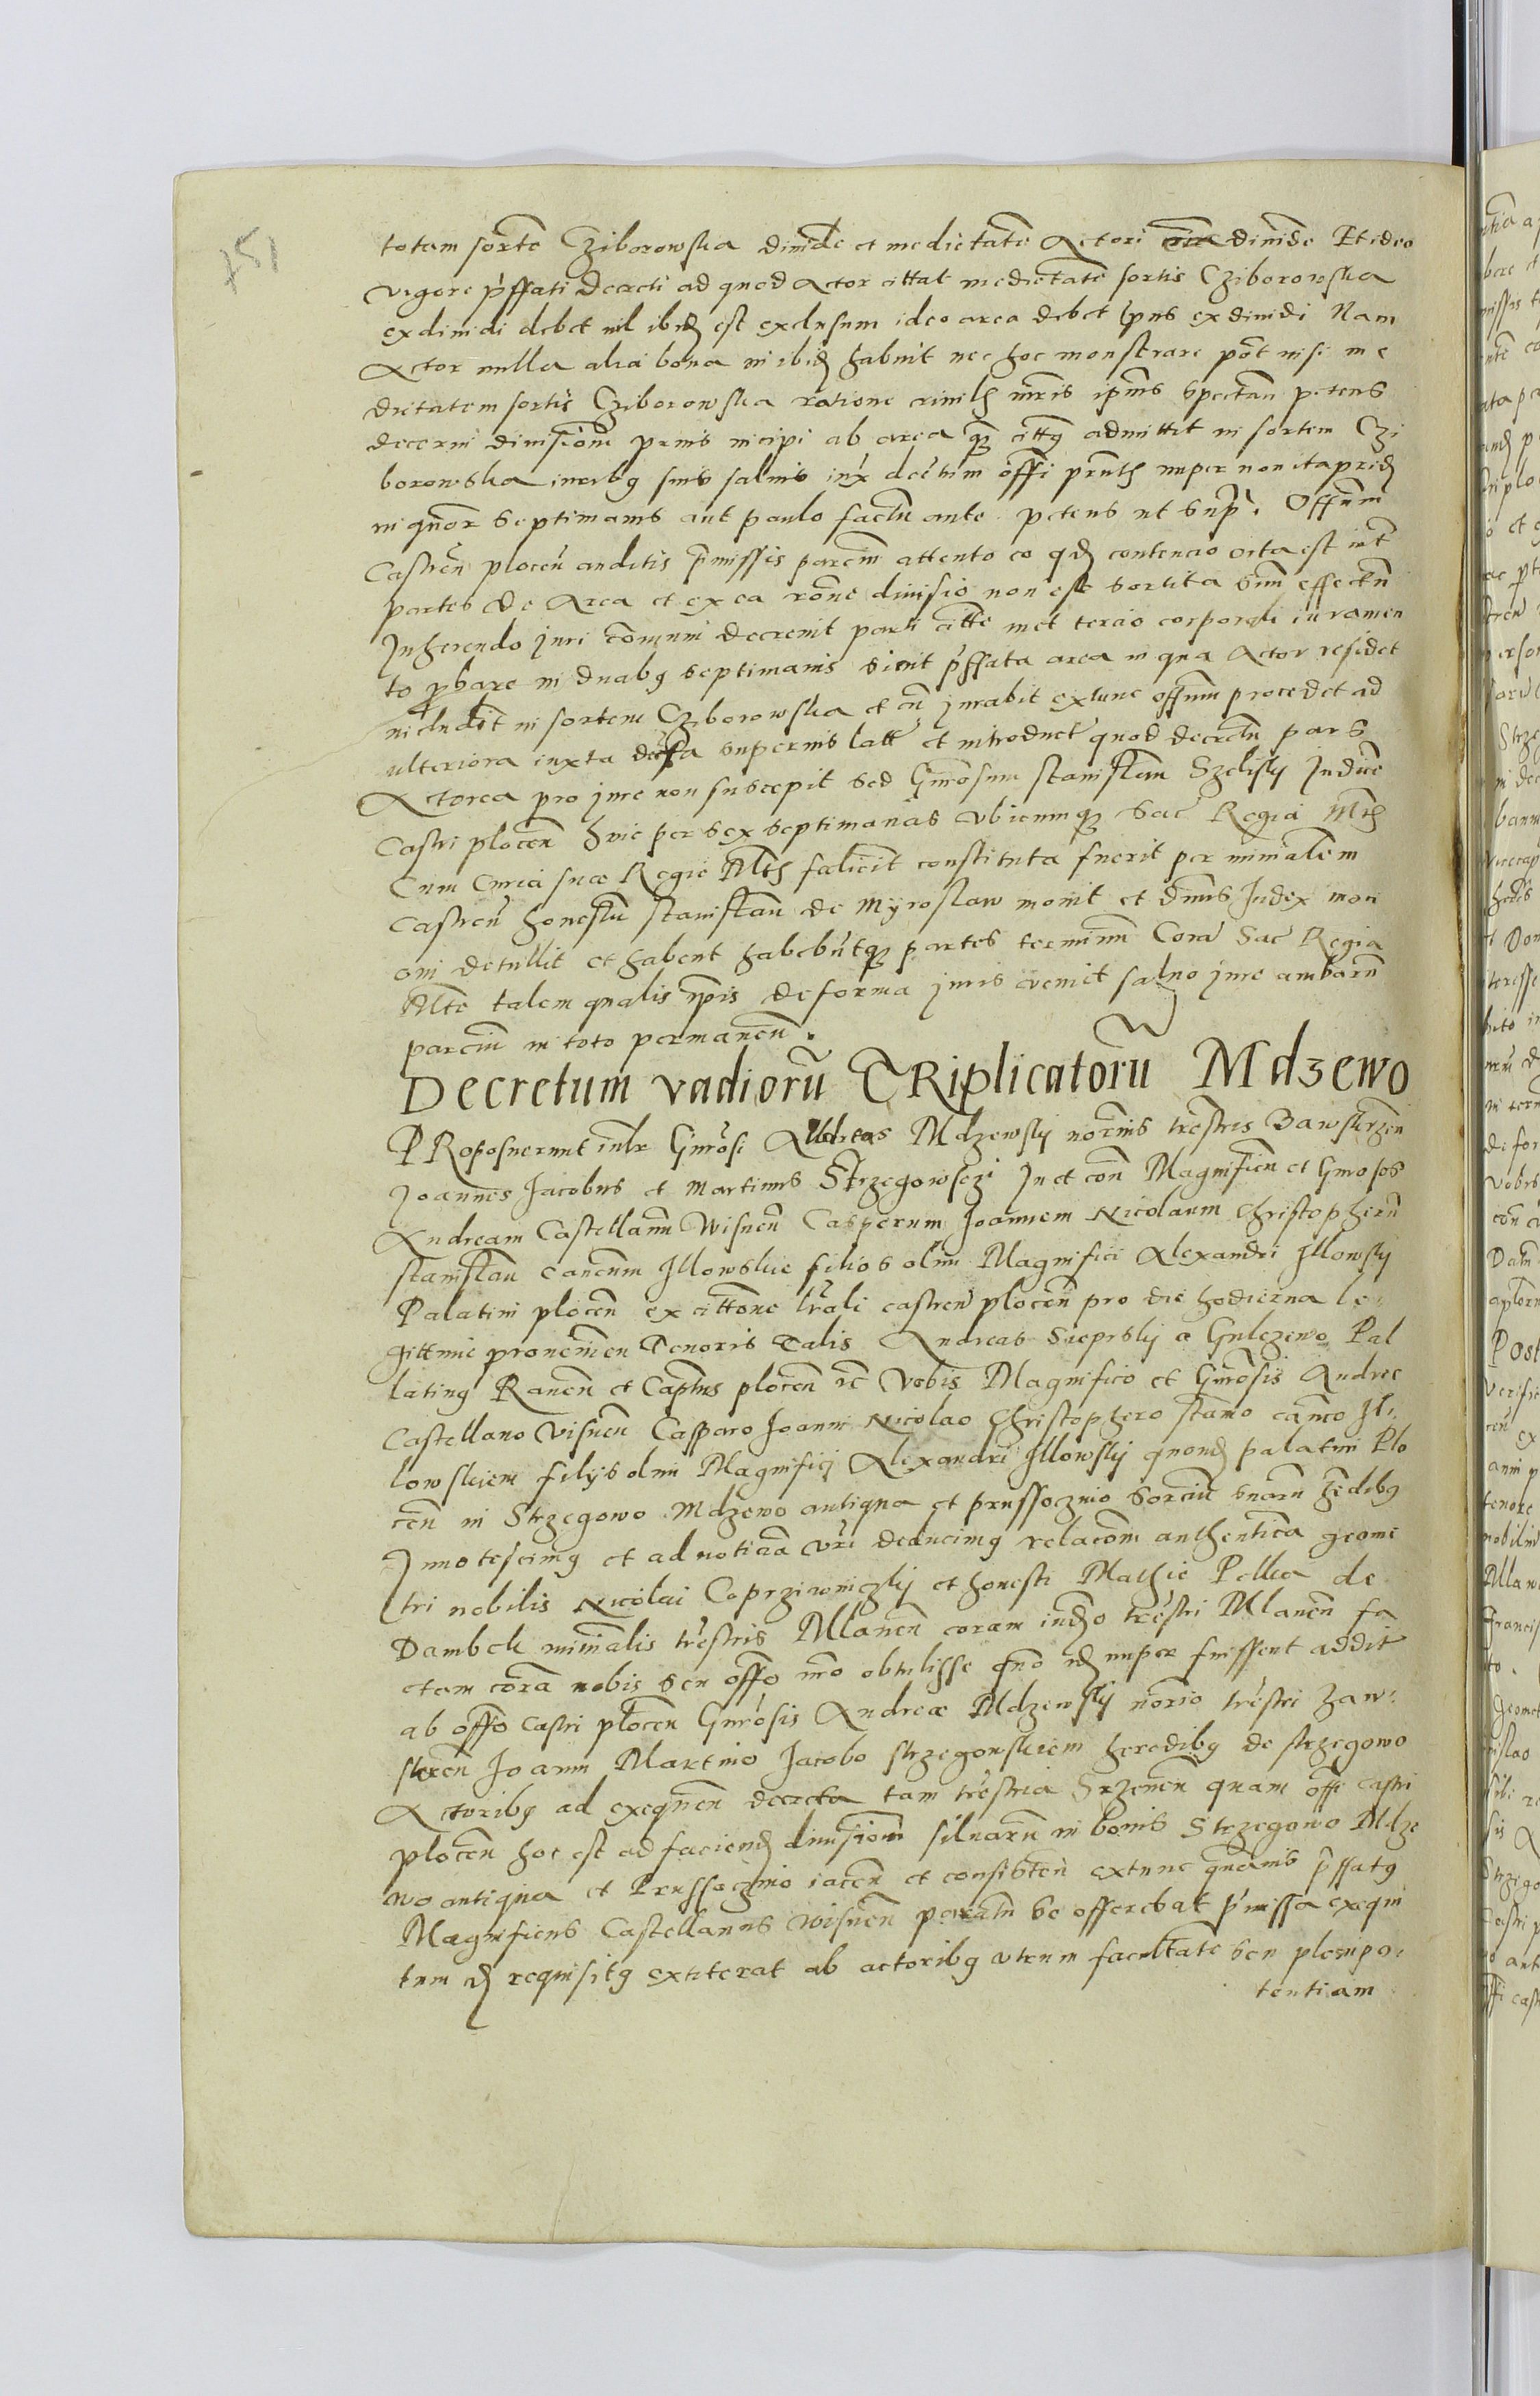 751
totam sorte Cziborowska dimide et medietate Actori dimide Et ideo
vigore pffati decreti ad quod Actor cittat medietate sortis Cziborowska
exdimidi debet nil ibid est exclusum ideo area debet exdimidi Nam
Actor nulla alia bona ibid habuit nec hoc monstrare pot nisi me
dietatem sortis Cziborowska ratione ipius spectan petens
decerni divisione prius incipi ab area admittit in sortem Czi
borowska salvis iux offi nuper non ita prid
in quor septimanis aut paulo factu ante petens ut sup. Offium
Castren plocen auditis pmissis parcium attento eo qd contencio orta est int
partes de Area et ex ea rone divisio non est sortita suu effectu
Inherendo juri comuni decrevit parti citte met tercio corporali iuramen
to pbare in duabg septimanis sicut pffata area in qua Actor residet
includit in sortem Cziborowska et cu jurabit extunc offium procedet ad
ulteriora iuxta superius latt et introduct quod decretu pars
Actorea pro jure non suscepit sed Gnrosum stanislau Szeliski Judice
Castri plocen huic per sex septimanas ubicumq Sac Regia Mts
Cum Curia sue Regie Mts faliciit constituta fuerit per minialem
castren honestu stanislau de Myroslaw movit et dnus Judex moti
oni detullit et habent habebutq partes terminu Cora Sac Regia
Mte talem qualis ipis de forma juris evenit salvo jure ambaru
parciu in toto permanen.
Decretum vadioru TRiplicatoru Mdzewo
PRoposuerunt Gnrosi Andreas Mdzewsky norius trestris Zawskrzen
Joannes Jacobus et Martinus Strzegowsczi In et con Magnificu et Gnrosos
Andream Castellanu Wisnen Casperum Joannem Nicolaum Christopheru
stanislau Illowskie filios olim Magnifici Alexandri Illowsky
Palatini plocen ex cittone lrali castren plocen pro die hodierna le
gittime provenien Tenoris talis Andreas Sieprsky a Gulczewo Pal
lating Raven et Captus plocen Vobis Magnifico et Gnrosis Andree
Castellano Visnen Casparo Joanni Nicolao Christophero Il
lowskiem filys olim Magnificj Alexandri Illowsky quond palatini Plo
cen in Strzegowo Mdzewo antiqua et prussoczino sorciu suaru hedibg
Innotescimg et ad noticia vri deducimg relacom authentica geome
tri nobilis Nicolai Coprziwniczky et honesti Mathie Pelka de
Dambek minialis trestris Mlawen coram iudo trestri Mlawen fa
ctam cora nobis seu offo nro obtulisse nuper fuissent additi
ab offo castri plocen Gnrosis Andreae Mdzewsky norio trestri Zaw
skren Joanni Martino Jacobo strzegowskiem heredibg de strzegowo
Actoribg ad exequen decreta tam trestria Srzenen quam offi castri
plocen hoc est ad faciend divisionu silvaru in bonis Strzegowo Mdze
wo antiqua et Prussoczino iacen et consisten extunc quamis pffatg
Magnificus Castellanus Wisnen paratu se offerebat pmissa exequi
tum requisitg extiterat ab actoribg utrum facultate seu plenipo
tentiam